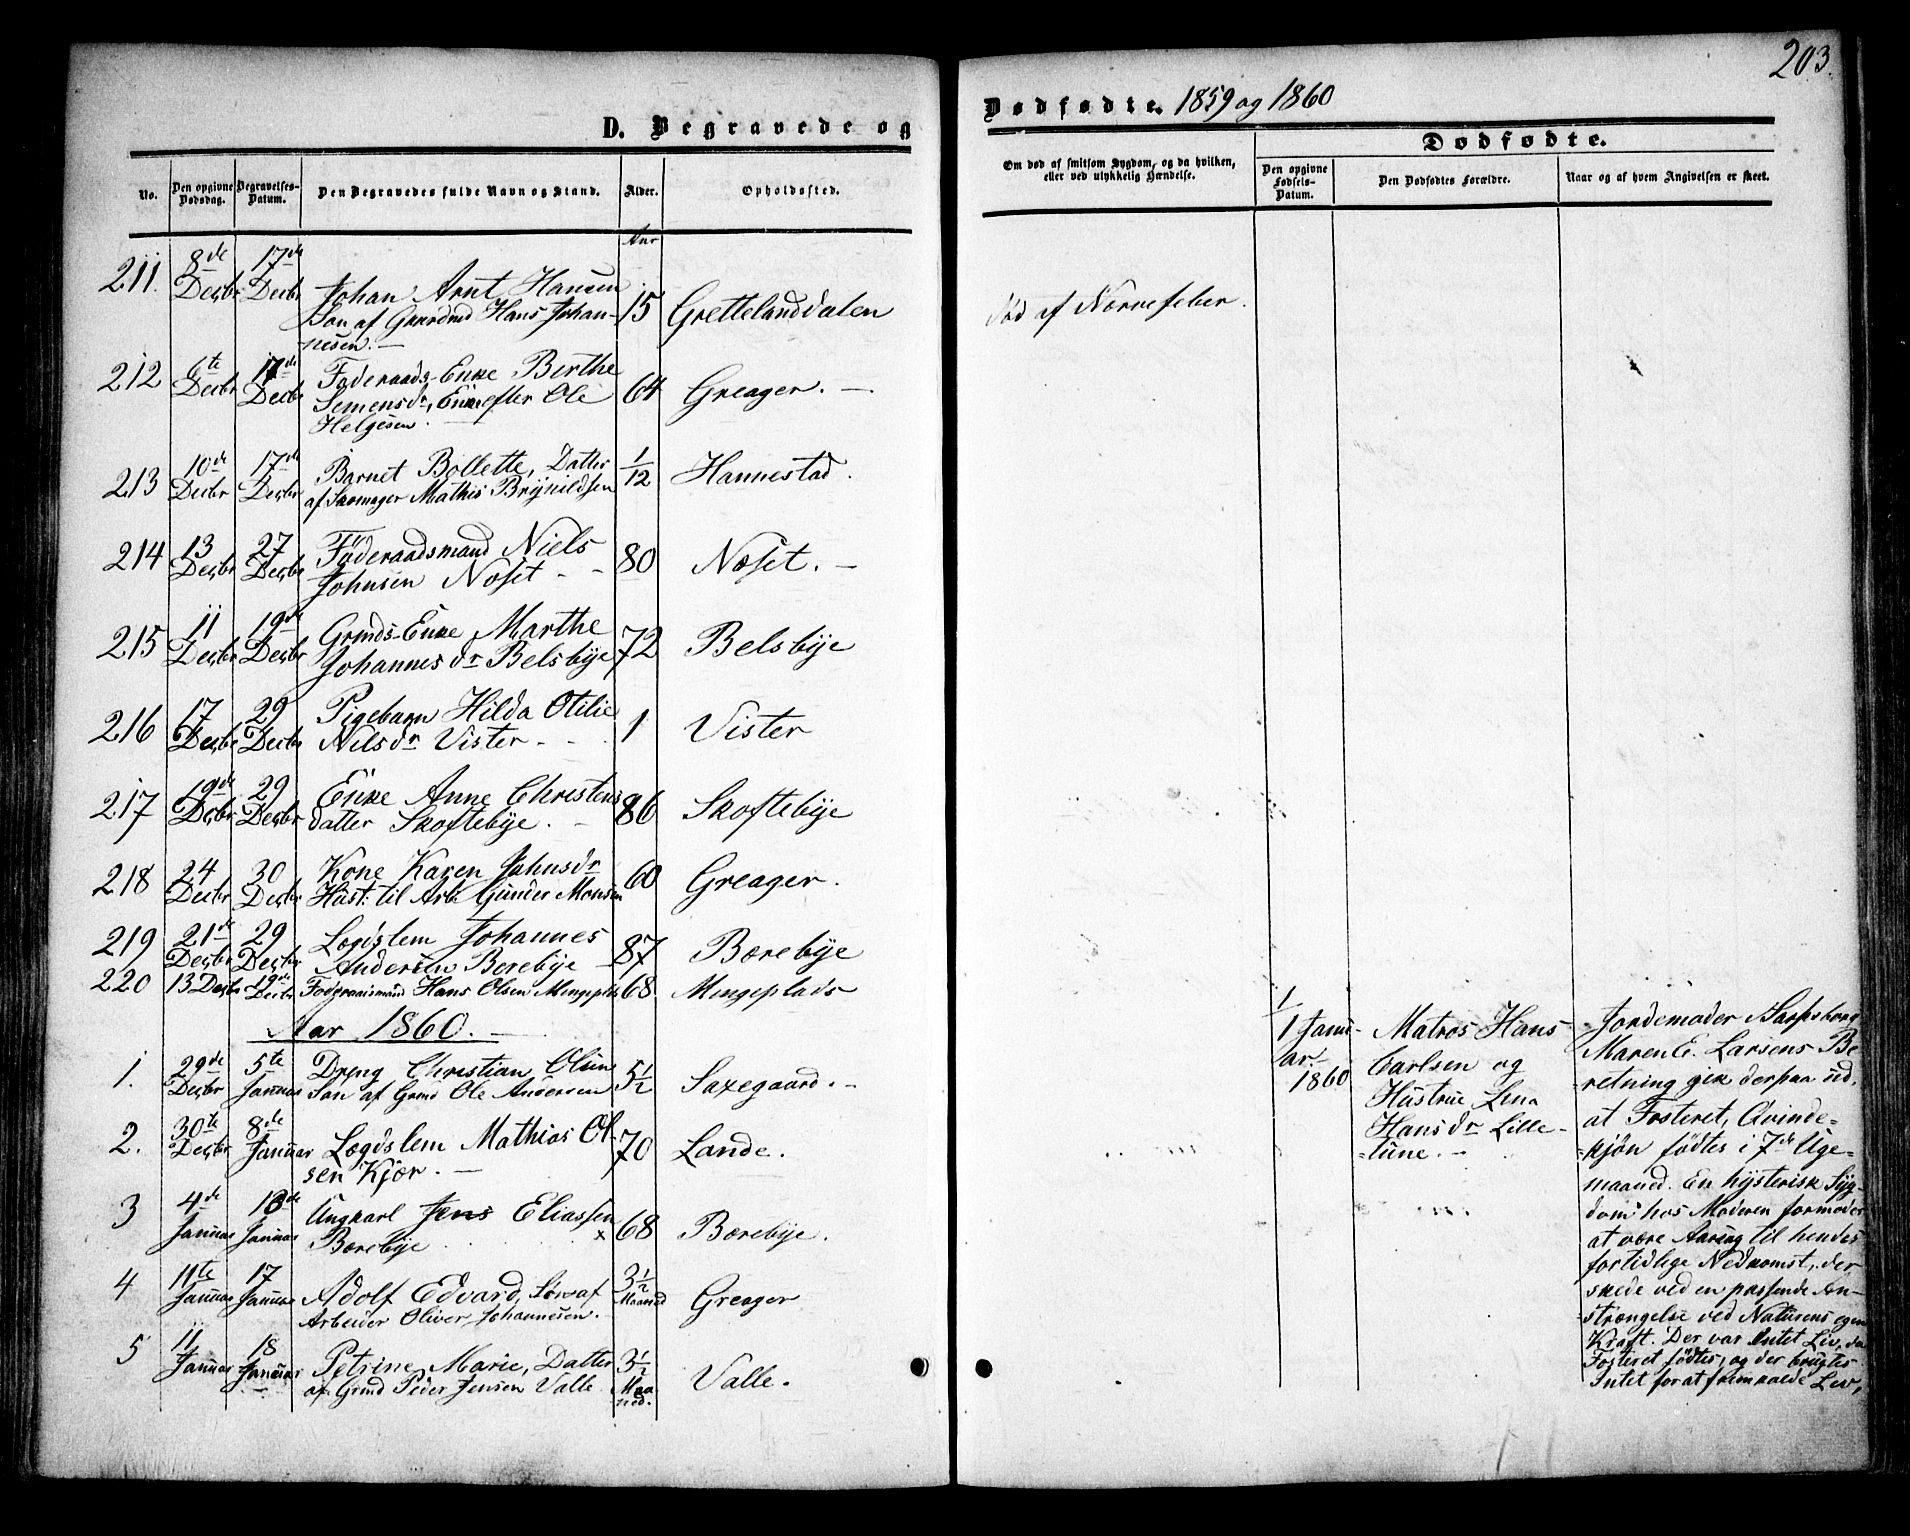 203.
D. Begravede og
Dødfødte. 1859 og 1860
No.
Den opgivne Dødsdag.
Begravelses-Datum.
Den Begravedes fulde Navn og Stand.
Alder.
Opholdssted.
Om død af smitsom Sygdom, og da hvilken,
eller ved ulykkelig Hændelse.
Dødfødte.
Den opgivne Fødsels-Datum.
Den Dødfødtes Forældre.
Naar og af hvem Angivelsen er skeet.
Aar
211. 8de Decbr 17de Decbr Johan Arnt Hansen 15 Grettelanddalen Død af Nervefeber.
Søn af Gaardmd Hans Johan-
nesen. —
212 6te Decbr 17de Decbr Føderaads-Enke Berthe 64 Greager. —
Semensdr, Enke efter Ole
Helgesen.
213 10de Decbr 17de Decbr Barnet Bollette, Datter 1/12 Hannestad.
af Skomager Mathis Brynildsen
214 13 Decbr 27 Decbr Föderaadsmand Niels 80 Noset. —
Johnsen Noset - -
215 11 Decbr 19de Decbr Grmds-Enke Marthe 72 Belsbye
Johannesdr Belsbye
216 17 Decbr 29 Decbr Pigebarn Hilda Otilie 1 Vister
Nilsdr Vister - -
217 19de Decbr 29 Decbr Enke Anne Christens 86 Skoftebye
datter Skoftebye. -
218 24 Decbr 30 Decbr Kone Karen Johnsdr 60 Greager.
Hust: til Arb. Gunder Monsen
219 21de Decbr 29 Decbr Lægdslem Johannes 87 Borebye
Andersen Borebye —
220 13 Decbr 19de Decbr Hans Olsen Mingeplds 68. Mingeplads
Aar 1860. —
1. 29de Decbr 5te Januar Dreng Christian Olsen 5½ Saxegaard. -
Søn af Grmd Ole Andersen
2. 30te Decbr 8de Januar Lægdslem Mathias Ol- 70 Lande.
sen Kjær. —
3 4de Januar Januar Ungkarl Jens Eliassen 68 Borebye.
x
Borebye
4 11te Januar 17 Januar Adolf Edvard, Søn af 3½ Maaned Greager
Arbeider Oliver Johannesen. -
5 11 Januar 18 Januar Petrine Marie, Datter 3½ Maaned. Valle.
af Grmd Peder Jensen Valle
1/1 Janu-
ar.
1860
Matros Hans
Carlsen og
Hustrue Lena
Hansdr Lille-
tune. -
Jordemoder i Sarpsborg
Maren E. Larsens Be-
retning gik derpaa ud,
at Fosteret, Qvinde-
kjøn fødtes i 7de Uge-
maaned. En hysterisk Syg-
dom hos Moderen formodes
at være Aarsag til hendes
fortidlige Nedkomst, der
skede ved en passende An-
strængelse ved Naturens egen
Kraft. Der var Intet Liv, da
Fosteret fødtes, og der brugtes
Intet for at fremkalde Liv,